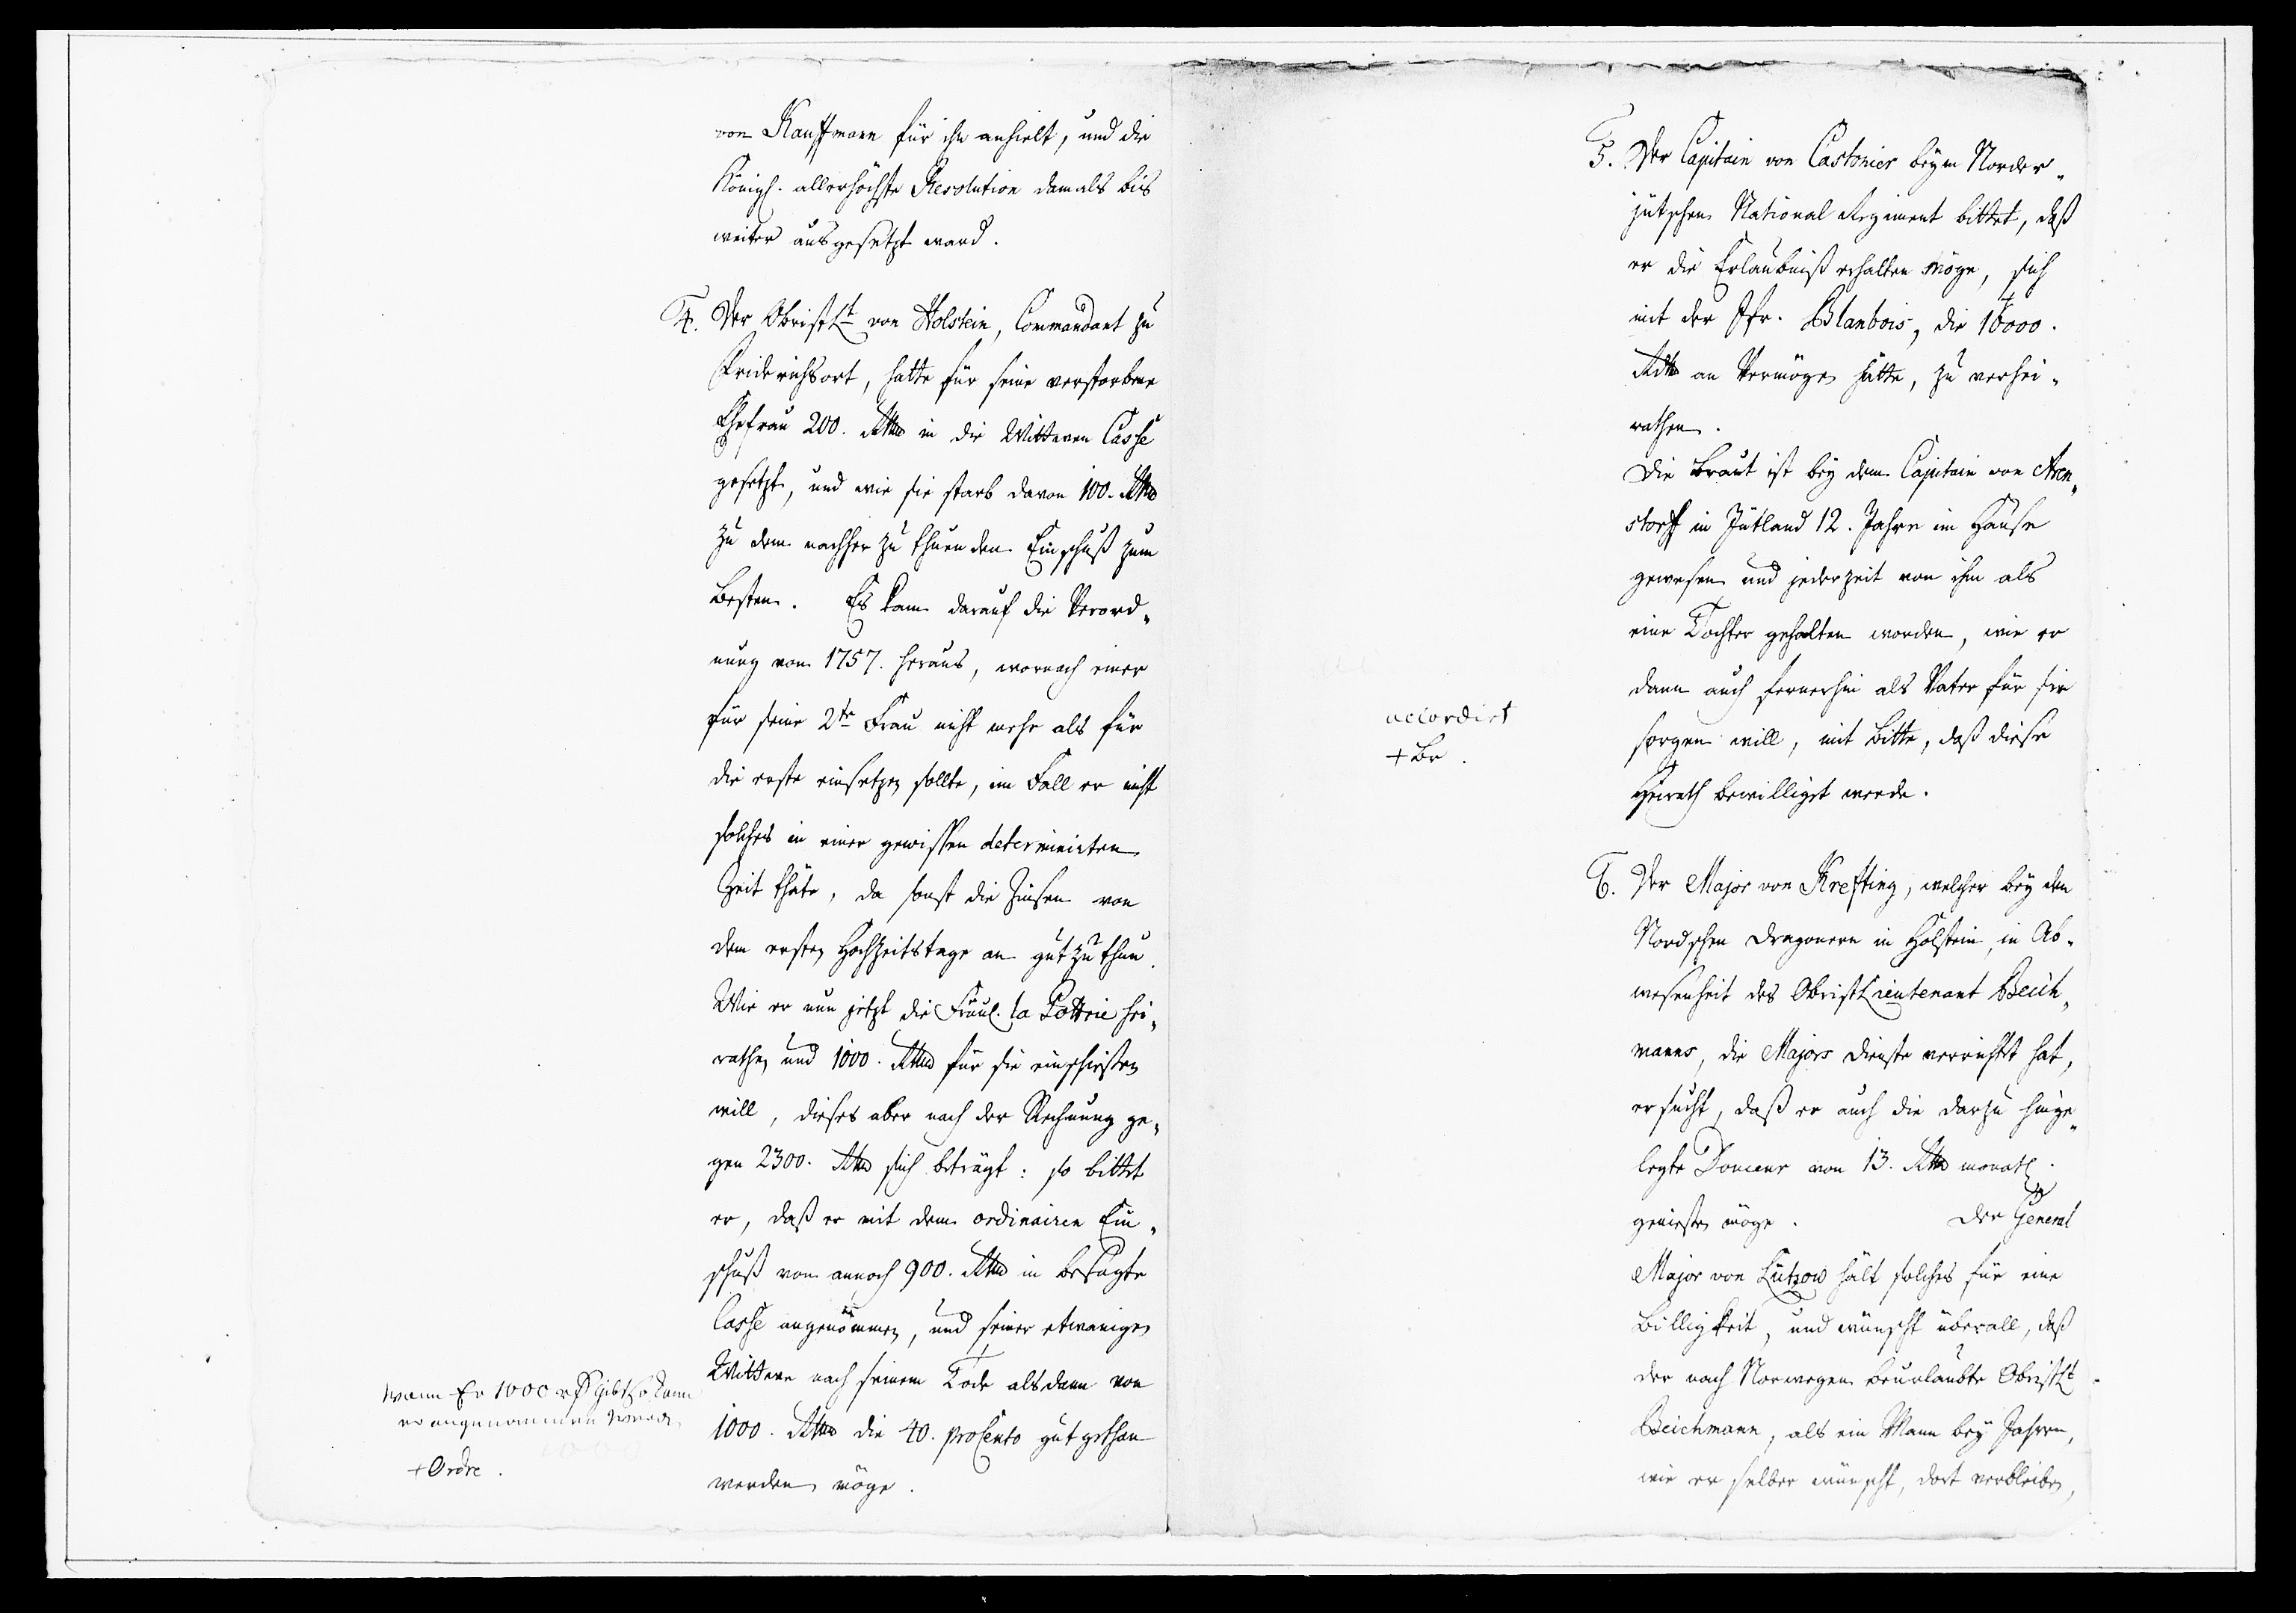 von Kauffmann für ihn anhielt, und die
Königl. allerhöchste Resolution damals bis
weiter ausgesetzt ward.
4. Der ObristLt von Holstein, Commandant zu
Friderichsort, hatte für seine verstorbene
Ehefrau 200. Rthlr in die Wittwen Casse
gesetzt, und wie sie starb davon 100. Rthlr
zu dem nachher zu thuenden Einschuß zum
Besten. Es kam darauf die Verord„
nung von 1757. heraus, wornach einer
für seine 2te Frau nicht mehr als für
die erste einsetzen sollte, im Fall er nicht
solches in einer gewissen determinirten
Zeit thäte, da sonst die Zinsen von
dem ersten Hochzeitstage an gut zu thun.
Wie er nun jetzt die Fräul. la Pottrie hei„
rathen und 1000. Rthlr für sie einschießen
will, dieses aber nach der Rechnung ge„
gen 2300. Rthlr sich beträgt: so bittet
er, daß er mit dem ordinairen Ein„
schuß von annoch 900. Rthlr in besagte
Casse angenommen, und seiner etwanigen
Wittwe nach seinem Tode alsdann von
1000. Rthlr die 40. proCento gut gethan
werden möge.
wann Er 1000 rß gibt so kann
er angenommen werden
+ Ordre.
5. Der Capitain von Castonier beym Norder„
jütschen National Regiment bittet, daß
er die Erlaubniß erhalten möge, sich
mit der Jfr. Blanbois, die 16000.
Rthlr an Vermögen hätte, zu verhei„
rathen.
Die Braut ist bey dem Capitain von Aren„
storff in Jütland 12. Jahre im Hause
gewesen und jederzeit von ihm als
eine Tochter gehalten worden, wie er
dann auch fernerhin als Vater für sie
sorgen will, mit Bitte, daß diese
Heirath bewilliget werde.
accordirt
+ Br.
6. Der Major von Krefting, welcher bey den
Nordschen Dragonern in Holstein, in Ab„
wesenheit des ObristLieutenant Beich„
manns, die Majors Dienste verrichtet hat,
ersucht, daß er auch die darzu hinge„
legte Douceur von 13. Rthlr monatl.
genießen möge. Der General
Major von Lützow hält solches für eine
Billigkeit, und wünscht überall, daß
der nach Norwegen beurlaubte ObristLt
Beichmann, als ein Mann bey Jahren,
wie er selber wünscht, dort verbleiben,